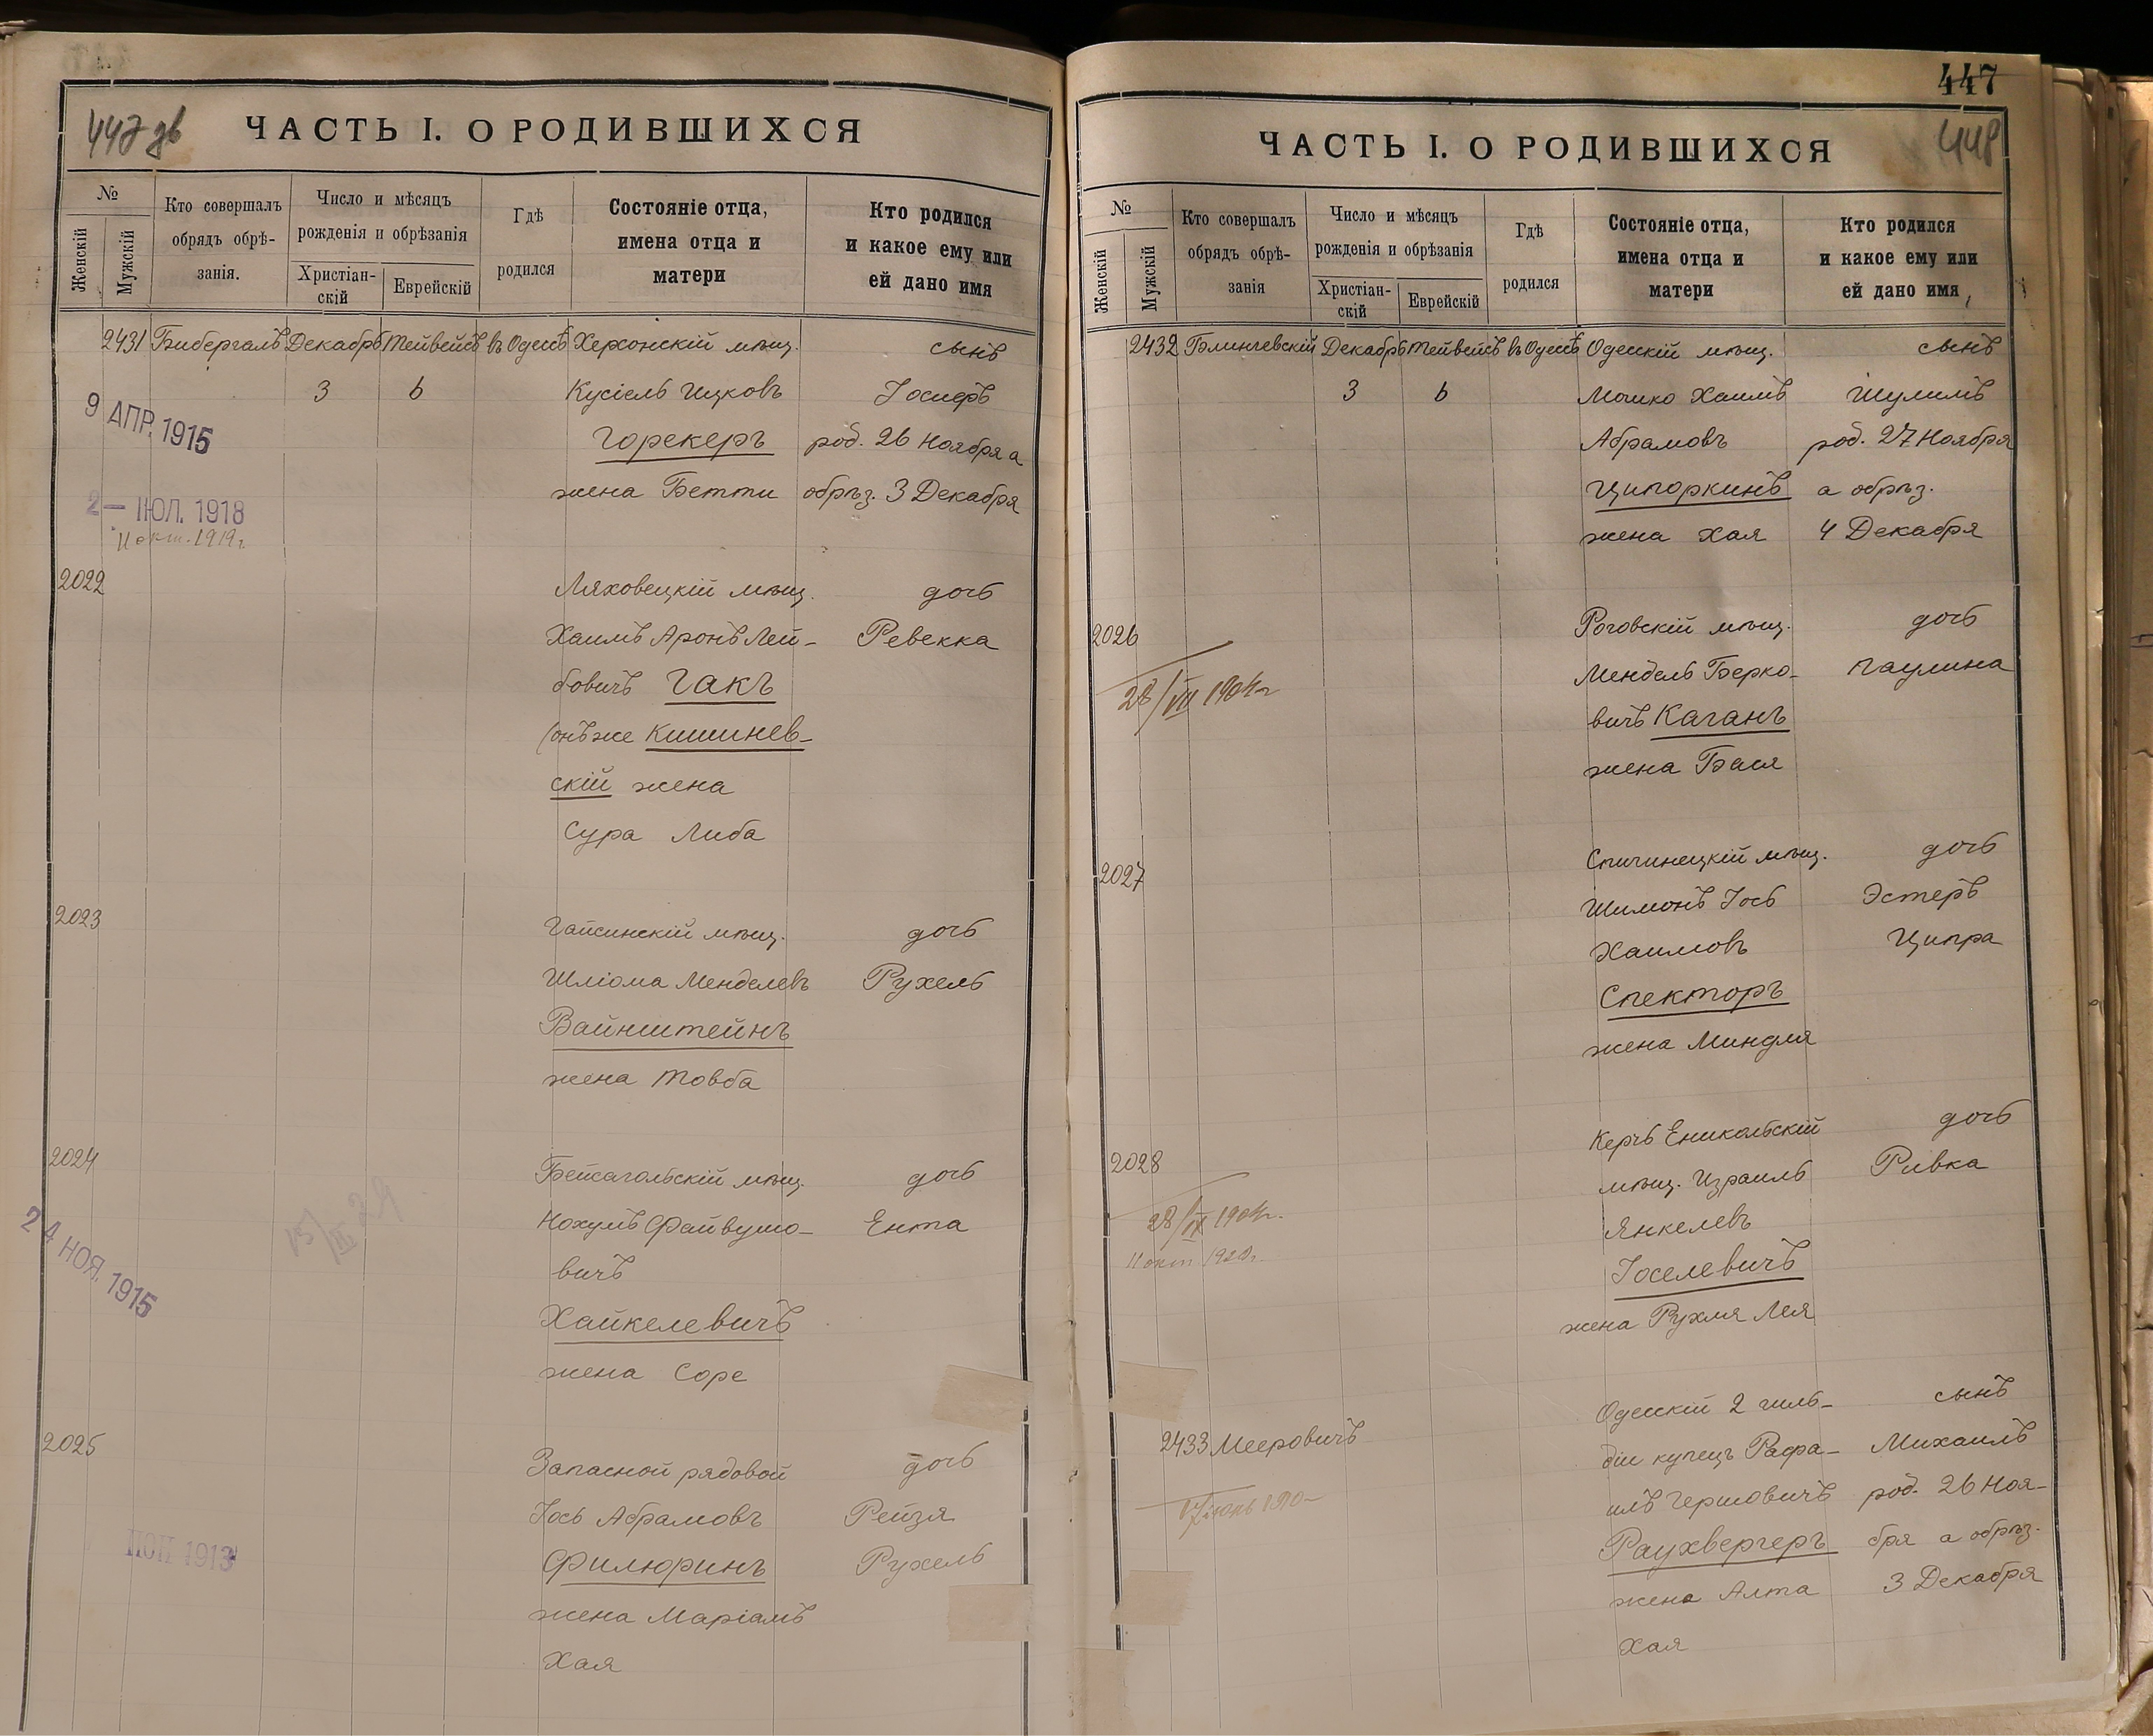 447 зв
ЧАСТЬ I. О РОДИВШИХСЯ
№
Женскій
Мужскій
Кто совершалъ
обрядъ обрѣ-
занія.
Число и мѣсяцъ
рожденія и обрѣзанія
Христіан-
скій
Еврейскій
Гдѣ
родился
Состояніе отца,
имена отца и
матери
Кто родился
и какое ему или
ей дано имя
2431 Бибергалъ Декабрь Тейвейсъ въ Одессѣ Херсонскій мѣщ. сынъ
3 6 Кусіель Ицковъ Іосифъ
9 АПР. 1915
Горекеръ род. 26 Ноября а
жена Бетти обрѣз. 3 Декабря
2 — ІЮЛ. 1918
11 окт. 1919 г.
2022 Ляховецкій мѣщ. дочь
Хаимъ Аронъ Лей- Ревекка
бовичъ Гакъ
(онъ же Кишинев-
скій жена
Сура Либа
2023 Гайсинскій мѣщ. дочь
Шліома Менделевъ Рухель
Вайнштейнъ
жена Товба
2024 Бейсагольскій мѣщ. дочь
Нохумъ Файвушо- Ента
вичъ
24 НОЯ. 1915
Хайкелевичъ
жена Соре
2025 Запасной рядовой дочь
Іось Абрамовъ Рейзя
Филюринъ Рухель
1913
жена Маріамъ
Хая
447
448
ЧАСТЬ I. О РОДИВШИХСЯ
№
Женскій
Мужскій
Кто совершалъ
обрядъ обрѣ-
занія
Число и мѣсяцъ
рожденія и обрѣзанія
Христіан-
скій
Еврейскій
Гдѣ
родился
Состояніе отца,
имена отца и
матери
Кто родился
и какое ему или
ей дано имя
2432 Блинчевскій Декабрь Тейвейсъ въ Одессѣ Одесскій мѣщ. сынъ
3 6 Мошко Хаимъ Шулимъ
Абрамовъ род. 27 Ноября
Ципоркинъ а обрѣз.
жена Хая 4 Декабря
2026 Роговскій мѣщ. дочь
Мендель Берко- Паулина
28/VII 1904 г
вичъ Каганъ
жена Бася
2027 Спичинецкій мѣщ. дочь
Шимонъ Іось Эстеръ
Хаимовъ Ципра
Спекторъ
жена Миндля
2028 Керчь Еникольскій дочь
мѣщ. Израиль Ривка
28/IX 1904 г.
Янкелевъ
11 окт 1920 г.
Іоселевичъ
жена Рухля Лея
Одесскій 2 гиль- сынъ
2433 Мееровичъ діи купецъ Рафа- Михаилъ
илъ Гершовичъ род. 26 Ноя-
Раухвергеръ бря а обрѣз.
жена Алта 3 Декабря
Хая